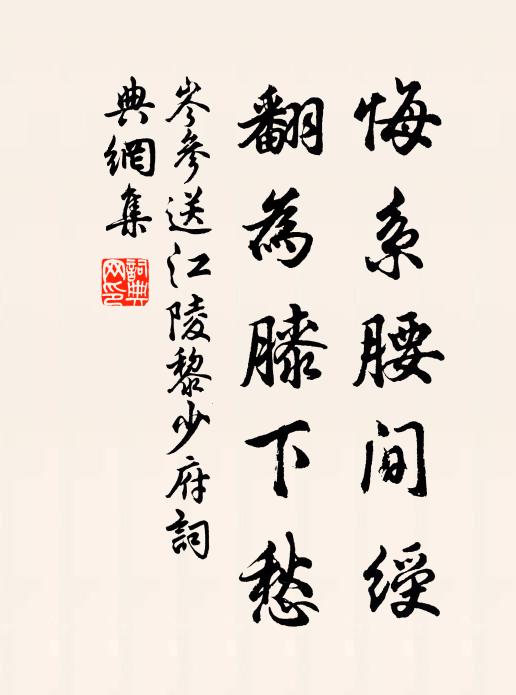 悔系腰间绶
翻為膝下愁
岑參送江陵黎少府詞
典網集
詞典网印